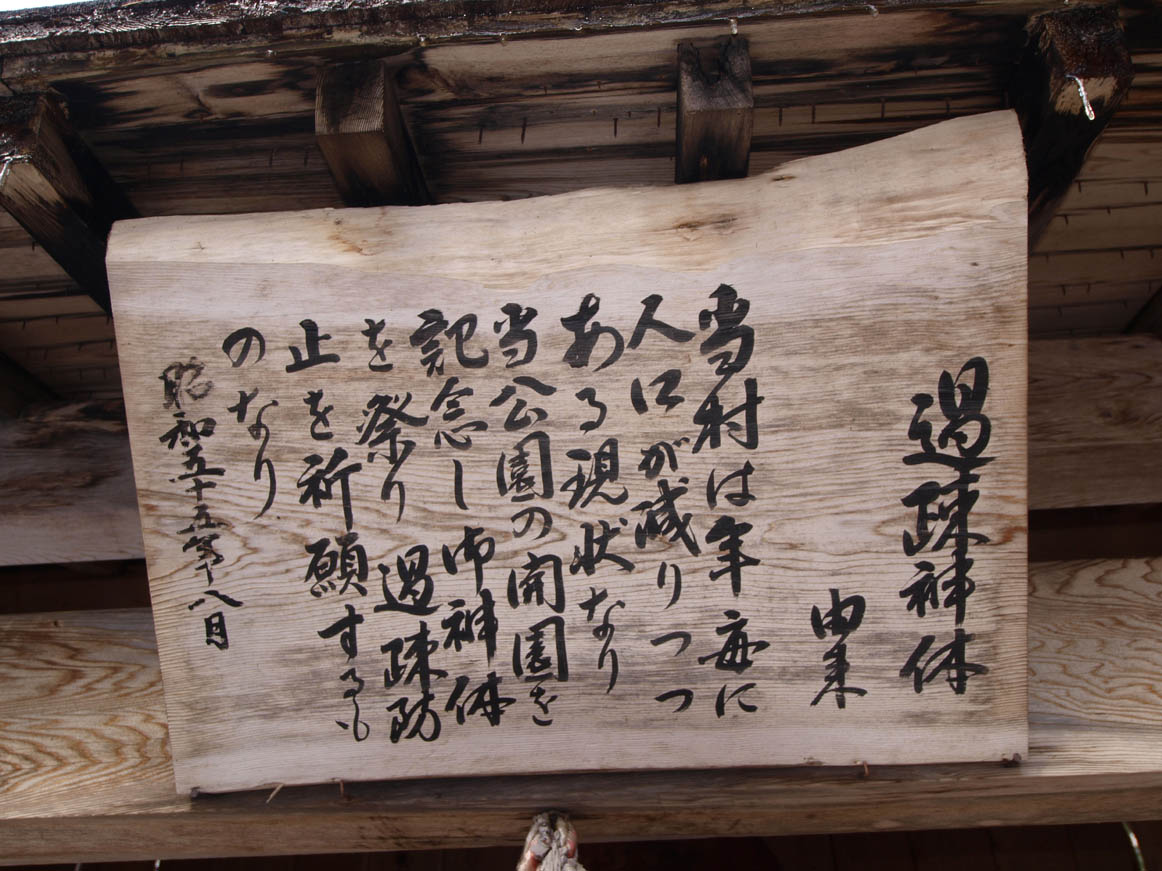 過疎神体
由来
当村は年毎に
人口が減りつつ
ある現状なり
当公園の開園を
記念し御神体
を祭り過疎防
止を祈願するも
のなり
昭和五十五年八月